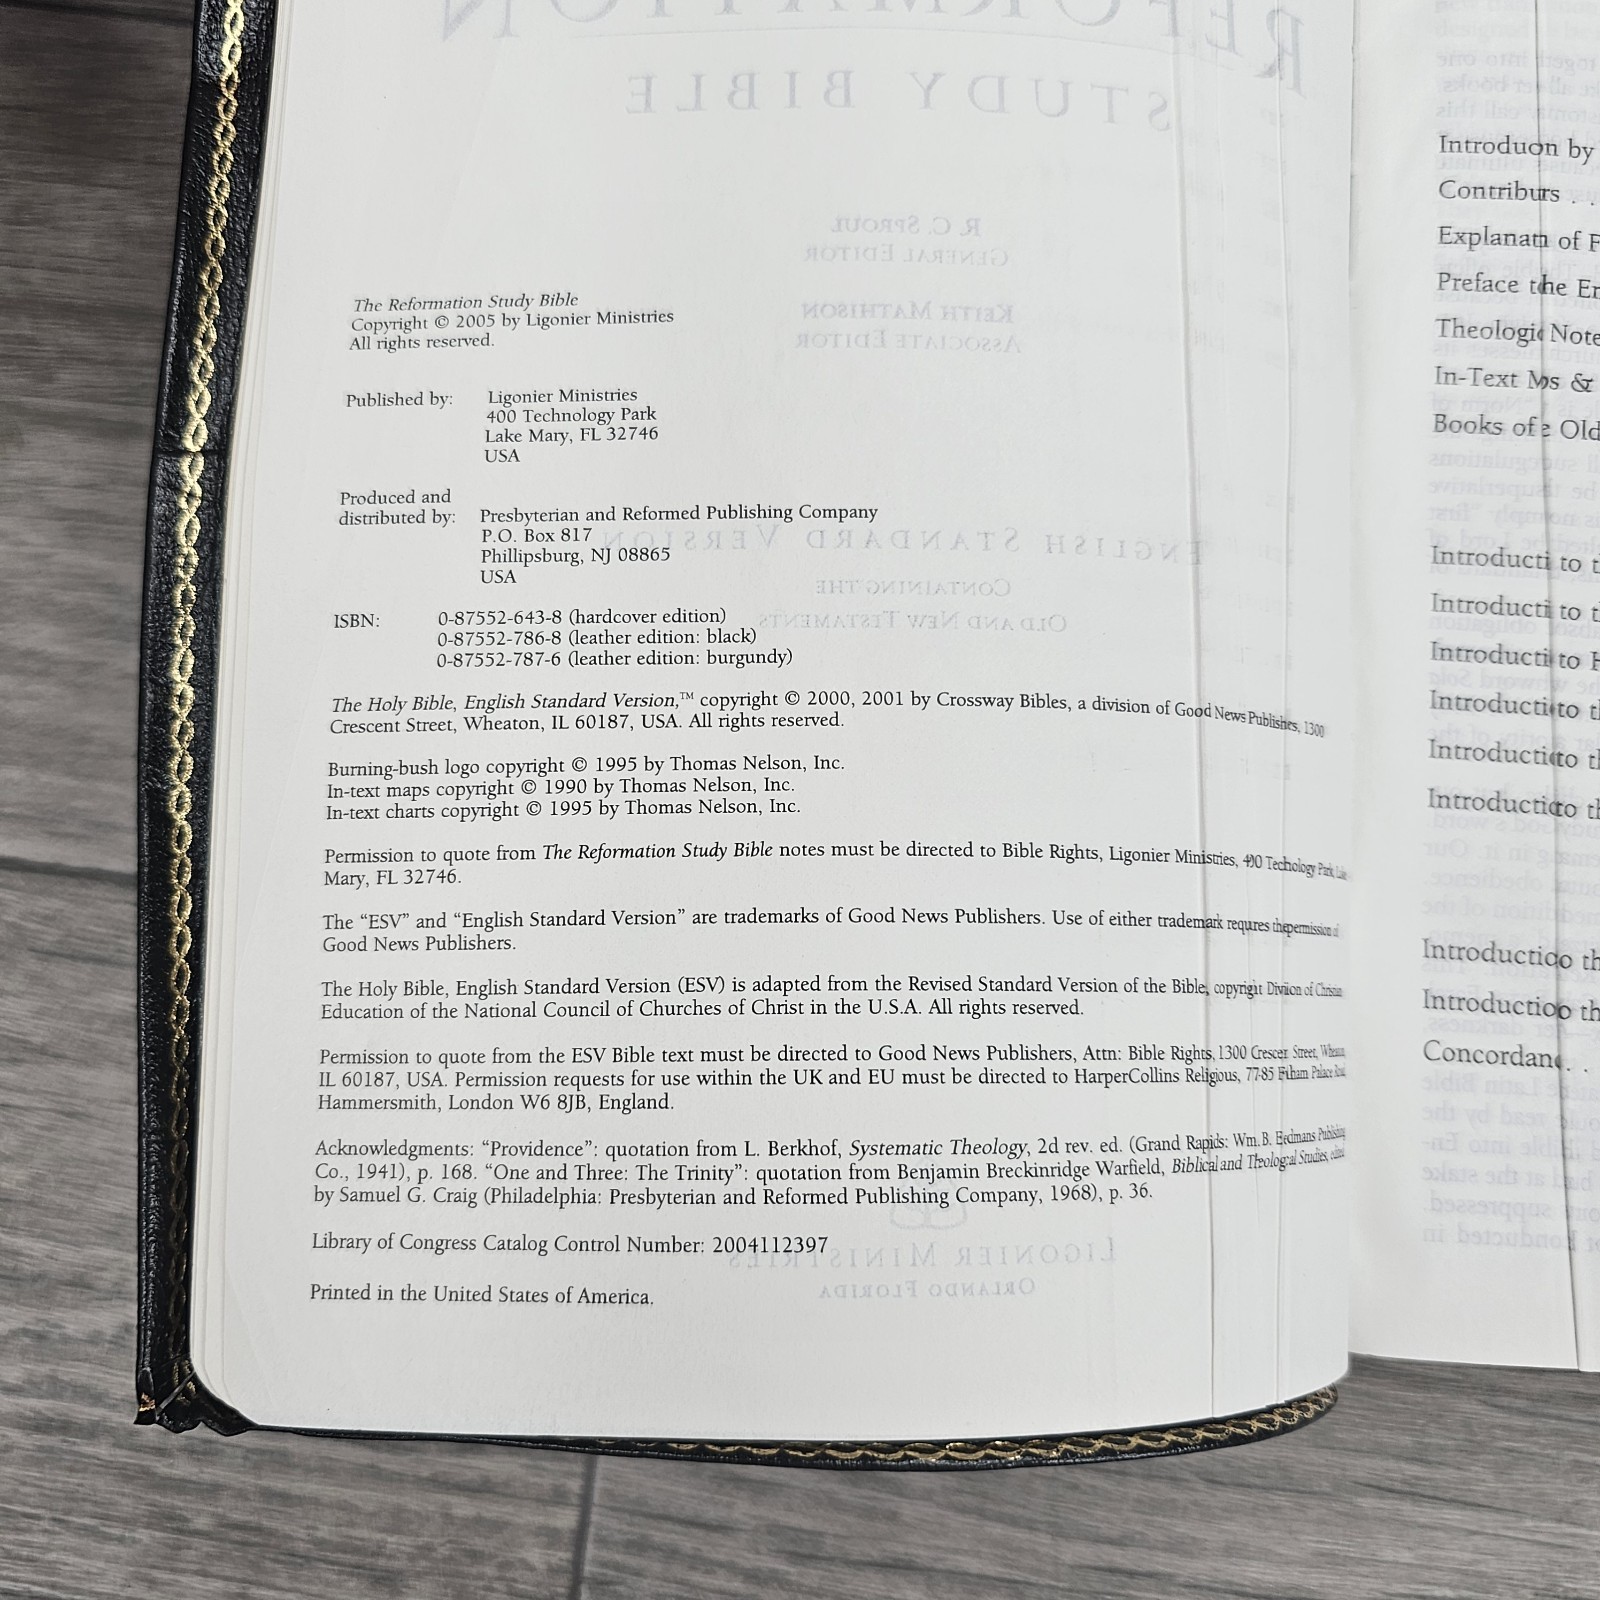 The Reformation Study Bible
Copyright © 2005 by Ligonier Ministries
All rights reserved.
Published by: Ligonier Ministries
400 Technology Park
Lake Mary, FL 32746
USA
Produced and
distributed by: Presbyterian and Reformed Publishing Company
P.O. Box 817
Phillipsburg, NJ 08865
USA
ISBN: 0-87552-643-8 (hardcover edition)
0-87552-786-8 (leather edition: black)
0-87552-787-6 (leather edition: burgundy)
The Holy Bible, English Standard Version,™ copyright © 2000, 2001 by Crossway Bibles, a division of Good News Publishes, 1300
Crescent Street, Wheaton, IL 60187, USA. All rights reserved.
Burning-bush logo copyright © 1995 by Thomas Nelson, Inc.
In-text maps copyright © 1990 by Thomas Nelson, Inc.
In-text charts copyright © 1995 by Thomas Nelson, Inc.
Permission to quote from The Reformation Study Bible notes must be directed to Bible Rights, Ligonier Ministries, 400 Techology Park,
Mary, FL 32746.
The “ESV” and “English Standard Version” are trademarks of Good News Publishers. Use of either trademark requres the permission of
Good News Publishers.
The Holy Bible, English Standard Version (ESV) is adapted from the Revised Standard Version of the Bible, copyright Diviion of Christian
Education of the National Council of Churches of Christ in the U.S.A. All rights reserved.
Permission to quote from the ESV Bible text must be directed to Good News Publishers, Attn: Bible Rights, 1300 Crescer Street,
IL 60187, USA. Permission requests for use within the UK and EU must be directed to HarperCollins Religious, 77-85 Palace
Hammersmith, London W6 8JB, England.
Acknowledgments: “Providence”: quotation from L. Berkhof, Systematic Theology, 2d rev. ed. (Grand Rapids: Wm. B. Publishing
Co., 1941), p. 168. “One and Three: The Trinity”: quotation from Benjamin Breckinridge Warfield, Biblical and Studies,
by Samuel G. Craig (Philadelphia: Presbyterian and Reformed Publishing Company, 1968), p. 36.
Library of Congress Catalog Control Number: 2004112397
Printed in the United States of America.
Introduon by
Contriburs . .
Explanatn of F
Preface the En
Theologic Note
In-Text Ms &
Books of e Old
Introducti to t
Introducti to t
Introducti to H
Introducti to t
Introductio to th
Introductio to th
Introductioo th
Introductioo th
Concordanc. .